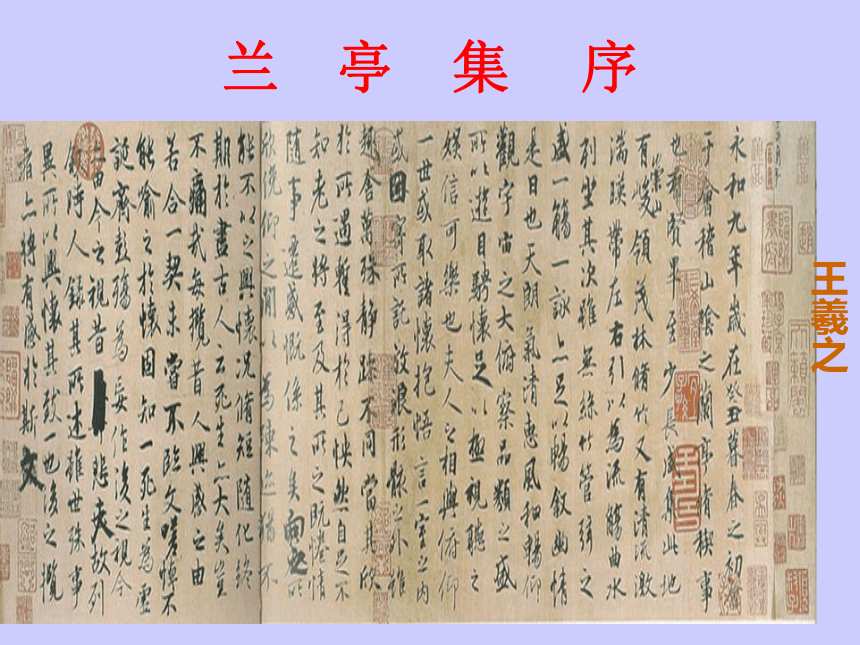 兰亭集序
王羲之
永和九年歲在癸丑暮春之初會
于會稽山陰之蘭亭脩禊事
也羣賢畢至少長咸集此地
有崇山峻領茂林脩竹又有清流激
湍暎帶左右引以為流觴曲水
列坐其次雖無絲竹管弦之
盛一觴一詠亦足以暢敘幽情
是日也天朗氣清惠風和暢仰
觀宇宙之大俯察品類之盛
所以遊目騁懷足以極視聽之
娛信可樂也夫人之相與俯仰
一世或取諸懷抱悟言一室之內
或因寄所託放浪形骸之外雖
趣舍萬殊靜躁不同當其欣
於所遇暫得於己快然自足不
知老之將至及其所之既惓情
隨事遷感慨係之矣向之所
欣俛仰之間以為陳迹猶不
能不以之興懷況脩短隨化終
期於盡古人云死生亦大矣豈
不痛哉每攬昔人興感之由
若合一契未嘗不臨文嗟悼不
能喻之於懷固知一死生為虛
誕齊彭殤為妄作後之視今
亦由今之視昔悲夫故列
敘時人錄其所述雖世殊事
異所以興懷其致一也後之攬
者亦將有感於斯文